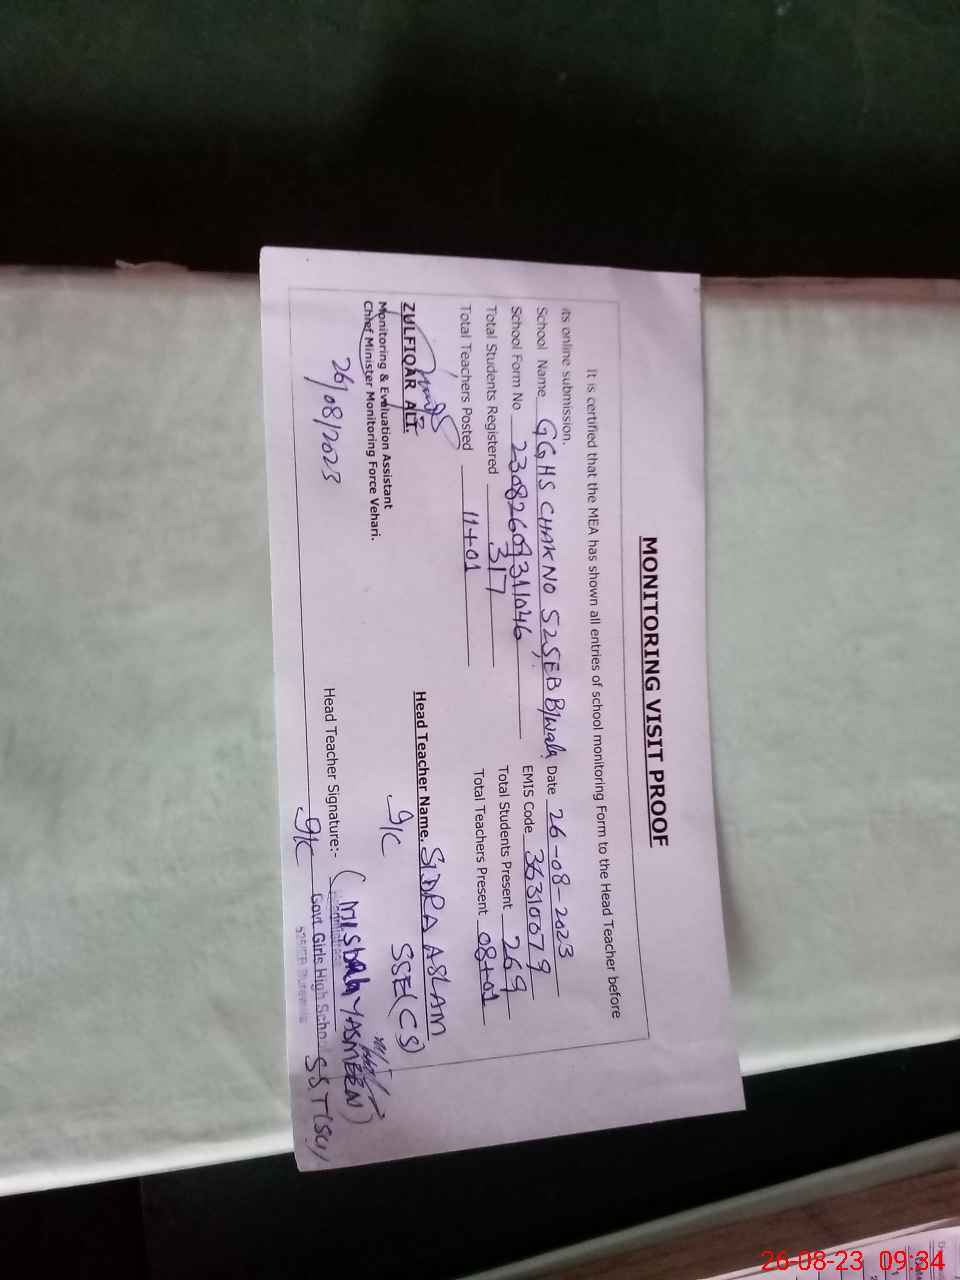 MONITORING VISIT PROOF
It is certified that the MEA has shown all entries of school monitoring Form to the Head Teacher before
its online submission.
School Name GGHS CHAK NO 525EB B/wala Date 26-08-2023
School Form No. 2308260931046 EMIS Code 36310079
Total Students Registered 317 Total Students Present 269
Total Teachers Posted 11+01 Total Teachers Present 08+01
ZULFIQAR ALI. Head Teacher Name. SIDRA ASLAM
Monitoring & Evaluation Assistant I/C SSE(CS)
Chief Minister Monitoring Force Vehari.
26/08/2023
Head Teacher Signature:- (MISBAH YASMEEN)
I/C S.S.T(Sci)
Govt. Girls High School
525/EB
26-08-23 09:34